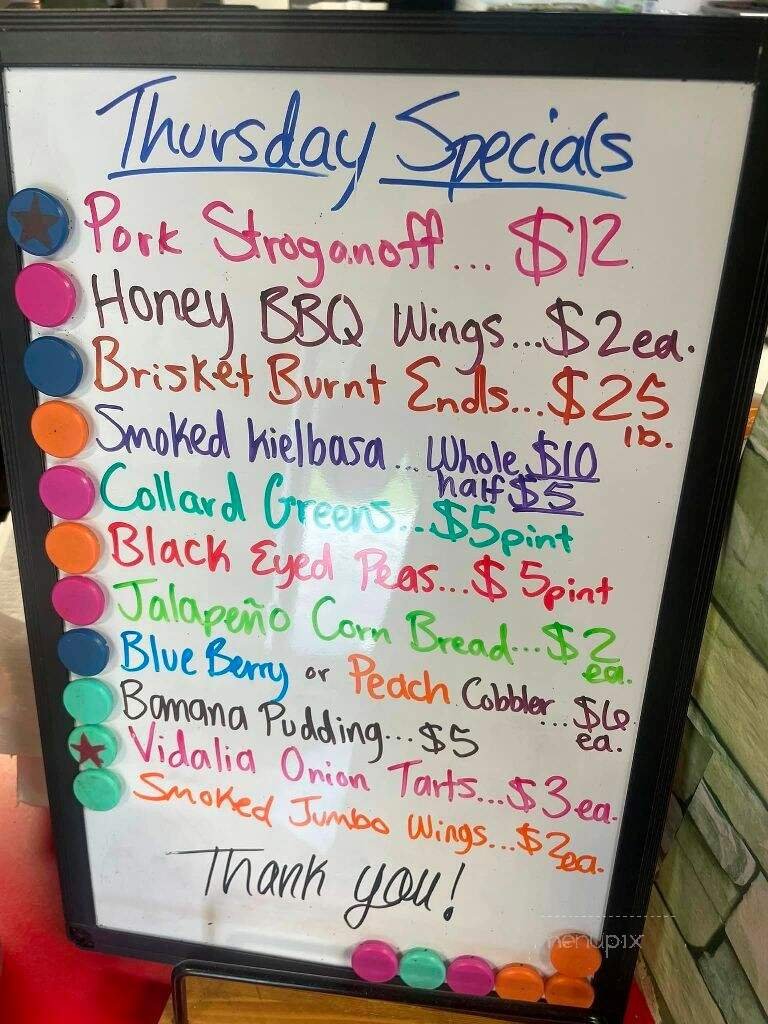 Thursday Specials
Pork Stroganoff... $12
Honey BBQ Wings...$2ea.
Brisket Burnt Ends...$25
lb.
Smoked Kielbasa... Whole $10
half $5
Collard Greens...$5pint
Black Eyed Peas...$5pint
Jalapeño Corn Bread...$2
ea.
Blue Berry or Peach Cobbler...$6
ea.
Banana Pudding...$5
Vidalia Onion Tarts...$3ea.
Smoked Jumbo Wings...$2ea.
Thank you!
menupix